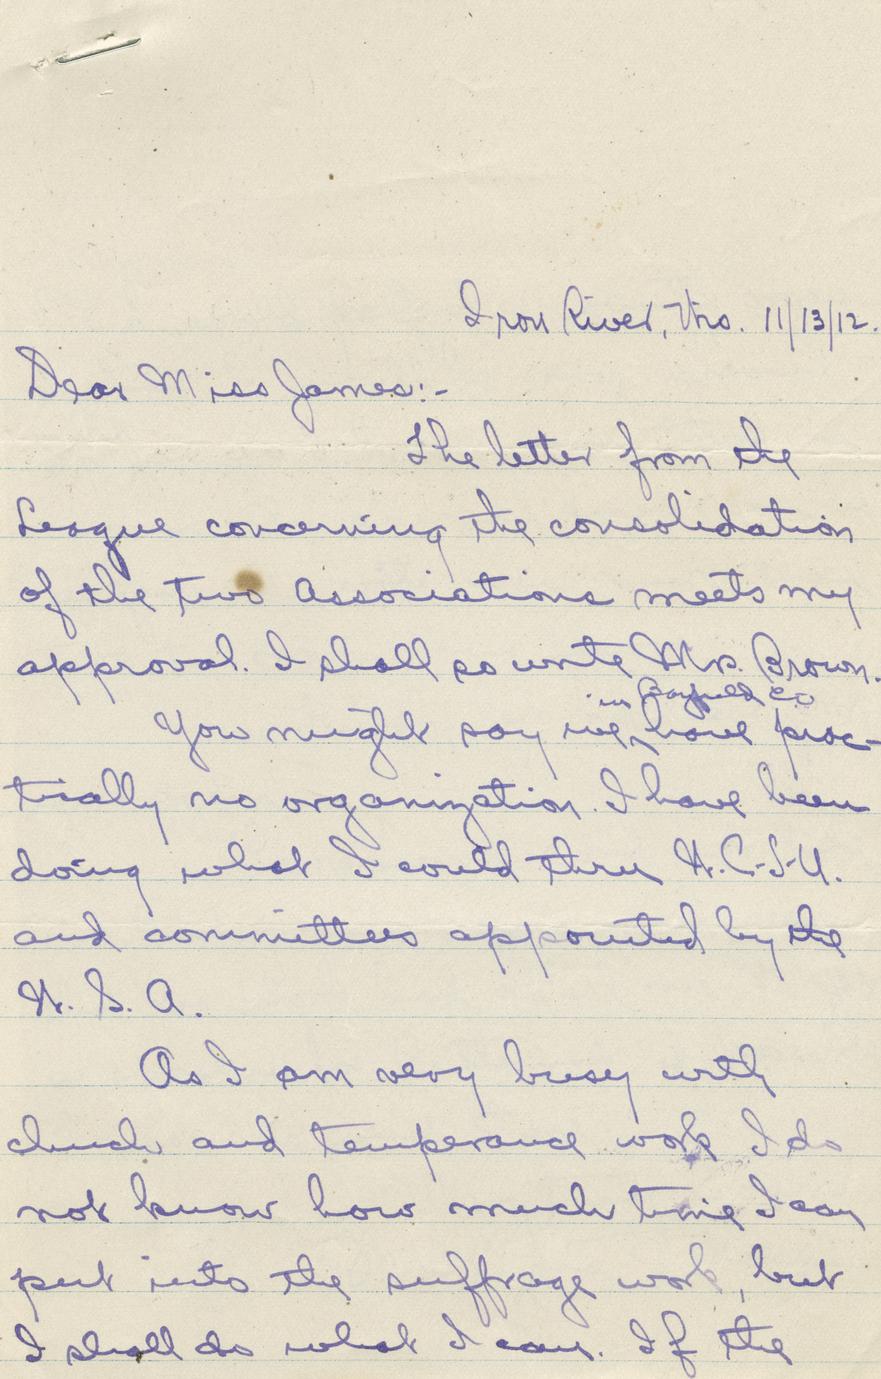 Iron River, Wis. 11/13/12.
Dear Miss James:-
The letter from the
League concerning the consolidation
of the two Associations meets my
approval. I shall so write Mrs. Brown.
in Bayfield Co
You might say we ^ have prac-
tically no organization. I have been
doing what I could thru W.C.T.U.
and committees appointed by the
W. S. A.
As I am very busy with
church and temperance work I do
not know how much time I can
put into the suffrage work, but
I shall do what I can. If the